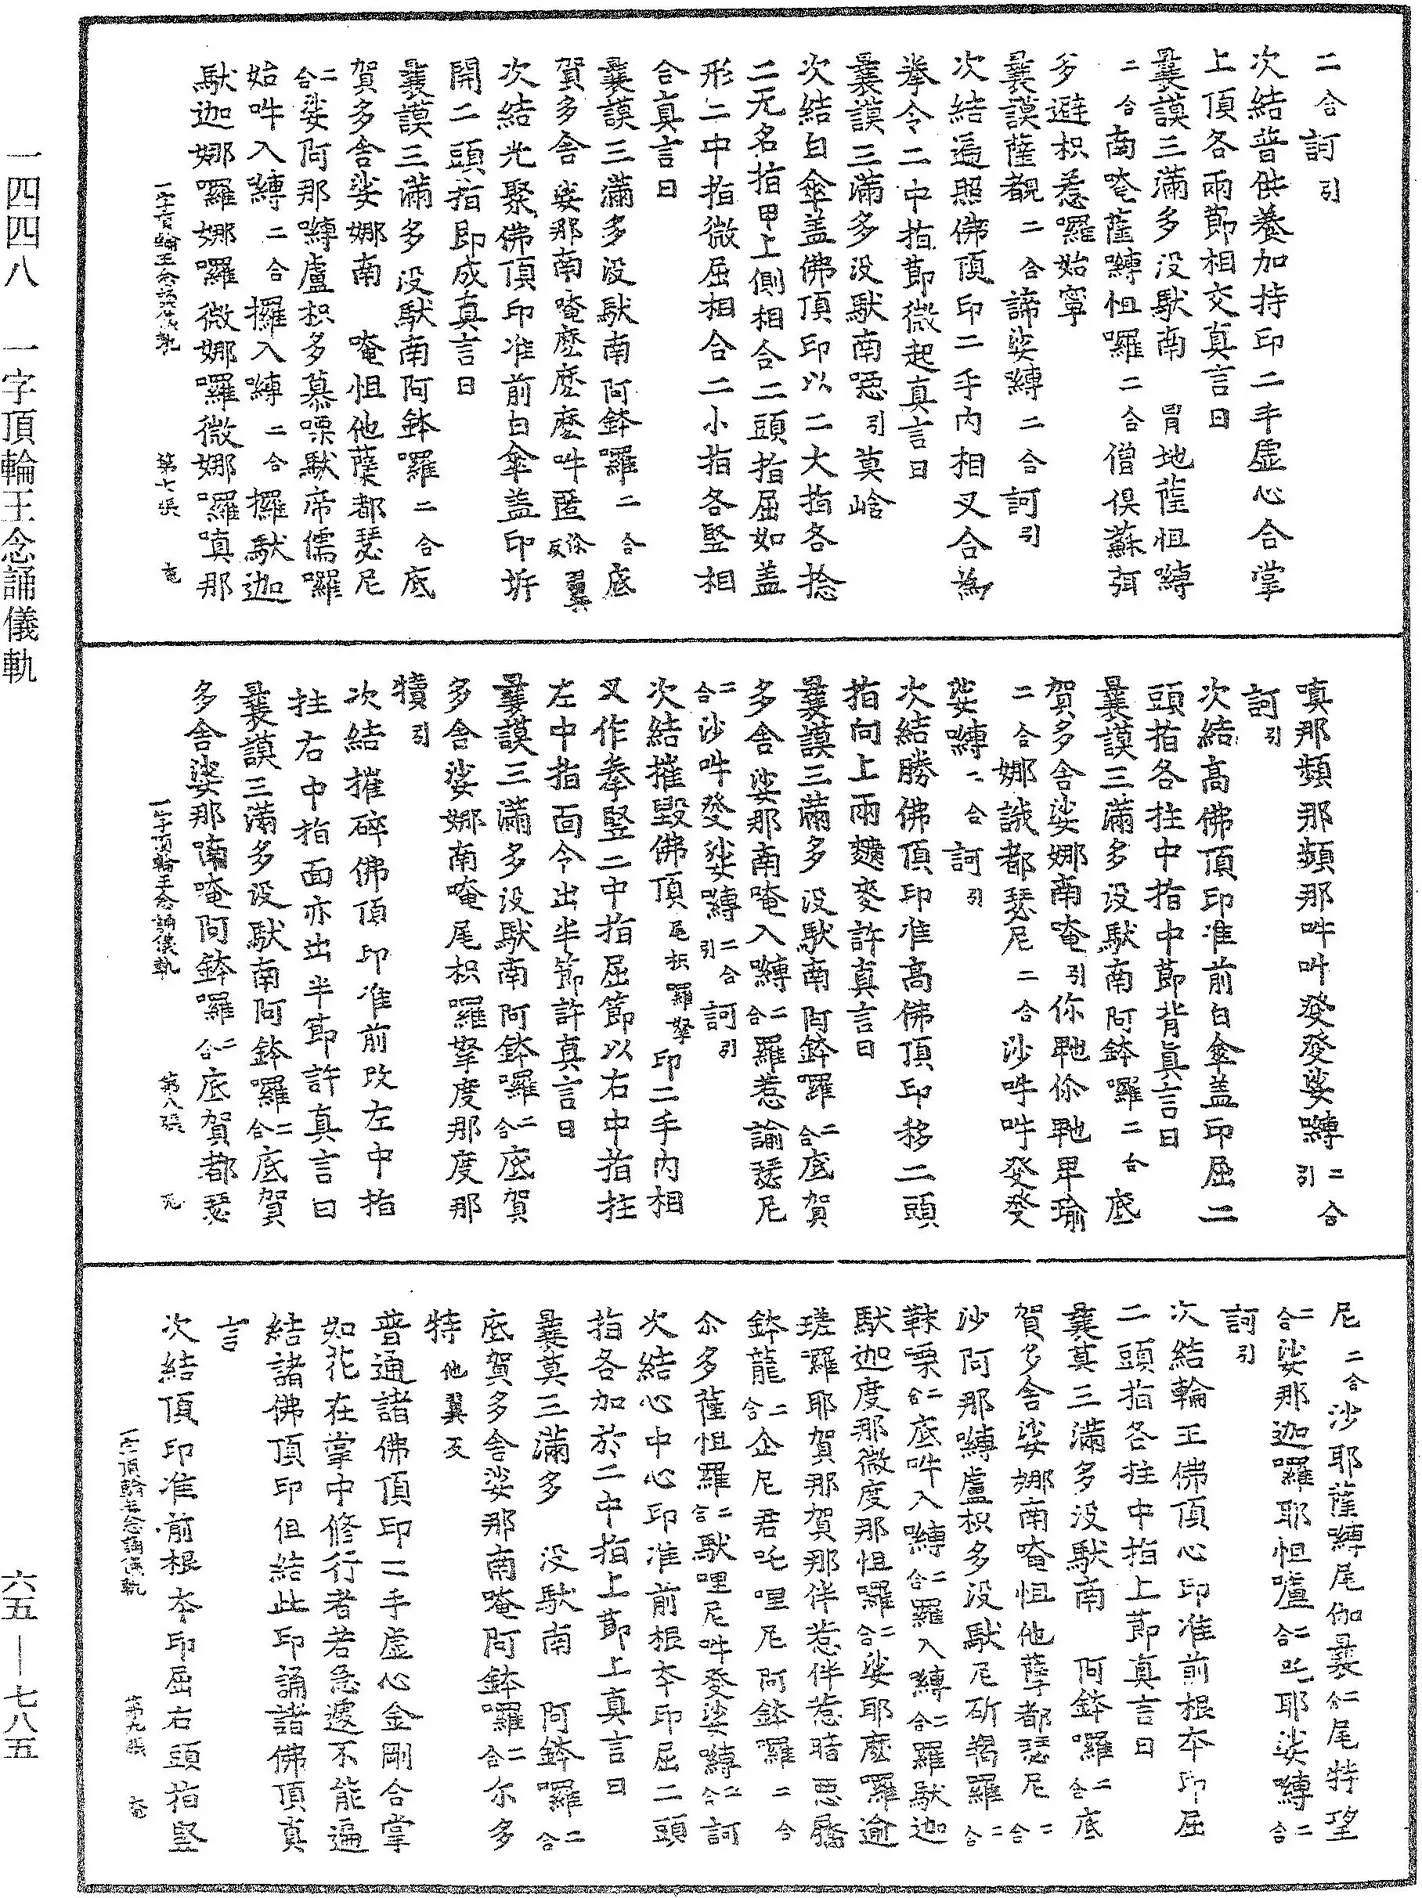 一四四八　一字頂輪王念誦儀軌
六五—七八五
二合訶引
次結普供養加持印二手虛心合掌
上頂各兩節相交真言曰
曩謨三滿多没馱南　胃地薩怛嚩
二合南唵薩嚩怛囉二合僧俱蘇弭
多避枳惹囉始寧
曩謨薩覩二合諦娑嚩二合訶引
次結遍照佛頂印二手内相叉合為
拳令二中指節微起真言曰
曩謨三滿多没馱南噁引莫唅
次結白傘盖佛頂印以二大指各捻
二无名指甲上側相合二頭指屈如盖
形二中指微屈相合二小指各竪相
合真言曰
曩謨三滿多没馱南阿鉢囉二合底
賀多舍娑那南唵麽麽麽吽匿
次結光聚佛頂印准前白傘盖印坼
開二頭指即成真言曰
曩謨三滿多没馱南阿鉢囉二合底
賀多舍娑娜南　唵怛他蘖都瑟尼
二合娑阿那嚩盧枳多慕㗚馱帝儒囉
始吽入嚩二合攞入嚩二合攞馱迦
馱迦娜囉娜囉微娜囉微娜囉嗔那
一字頂輪王念誦儀軌　第七張
嗔那頻那頻那吽吽發發娑嚩二合引
訶引
次結高佛頂印准前白傘盖印屈二
頭指各拄中指中節背真言曰
曩謨三滿多没馱南阿鉢囉二合底
賀多舍娑娜南唵引
二合娜誐都瑟尼二合沙吽吽發發
娑嚩二合訶引
次結勝佛頂印准高佛頂印移二頭
指向上兩𪍿麥許真言曰
曩謨三滿多没馱南阿鉢囉二合底賀
多舍娑那南唵入嚩二合羅惹諭瑟尼
二合沙吽發娑嚩二合引訶引
次結摧毀佛頂尾枳羅拏印二手内相
叉作拳竪二中指屈節以右中指拄
左中指面令出半節許真言曰
曩謨三滿多没馱南阿鉢囉二合底賀
多舍娑娜南唵尾枳囉拏度那度那
㹍引
次結摧碎佛頂印准前改左中指
拄右中指面亦出半節許真言曰
曩謨三滿多没馱南阿鉢囉二合底賀
多舍娑那喃唵阿鉢囉二合底賀都瑟
一字頂輪王念誦儀軌　第八張
尼二合沙耶薩嚩尾伽曩二合尾特望
二合娑那迦囉耶怛嚧二合吒耶娑嚩二合
訶引
次結輪王佛頂心印准前根夲印屈
二頭指各拄中指上節真言曰
曩莫三滿多没馱南　阿鉢囉二合底
賀多舍娑娜南唵怛他孽都瑟尼二合
沙阿那嚩盧枳多没馱尼斫羯羅二合
靺㗚二合底吽入嚩二合羅入嚩二合羅馱迦
馱迦度那微度那怛囉二合娑耶麽囉逾
瑳囉耶賀那賀那伴惹伴惹暗
鉢龍二合企尼君吒哩尼阿鉢囉二合
尒多薩怛羅二合馱哩尼吽發娑嚩二合訶
次結心中心印准前根夲印屈二頭
指各加於二中指上節上真言曰
曩莫三滿多　没馱南　阿鉢囉二合
底賀多舍娑那南唵阿鉢囉二合尒多
特他翼反
普通諸佛頂印二手虛心金剛合掌
如花在掌中修行者若急遽不能遍
結諸佛頂印但結此印誦諸佛頂真
言
次結頂印准前根夲印屈右頭指竪
一字頂輪王念誦儀軌　第九張